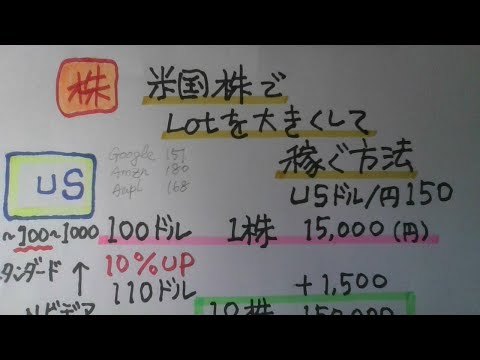 株
米国株で
Lotを大きくして
稼ぐ方法
Google 157
Amzn 180
Aapl 168
US
USドル/円150
~100~1000
100ドル 1株 15,000(円)
タンダード ↑
10%UP
110ドル +1,500
10株 150,000